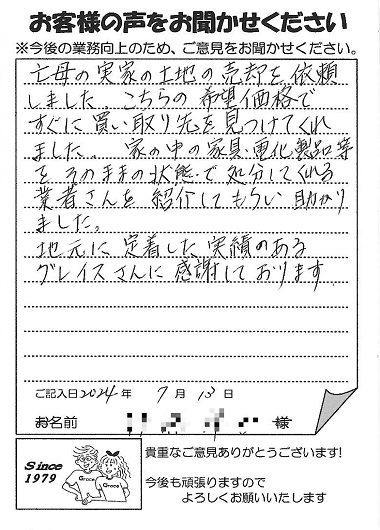 お客様の声をお聞かせください
※今後の業務向上のため、ご意見をお聞かせください。
亡母の実家の土地の売却を依頼
しました。こちらの希望価格で
すぐに買い取り先を見つけてくれ
ました。家の中の家具・電化製品等
をそのままの状態で処分してくれる
業者さんを紹介してもらい助かり
ました。
地元に定着した実績のある
グレイスさんに感謝しております
ご記入日2024年 7月 13日
お名前 様
Since
1979
Grace
Grace
貴重なご意見ありがとうございます!
今後も頑張りますので
よろしくお願いいたします